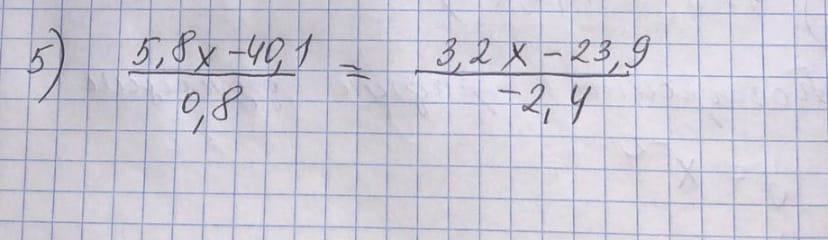 5) 5,8x-40,1 = 3,2x-23,9
0,8 -2,4